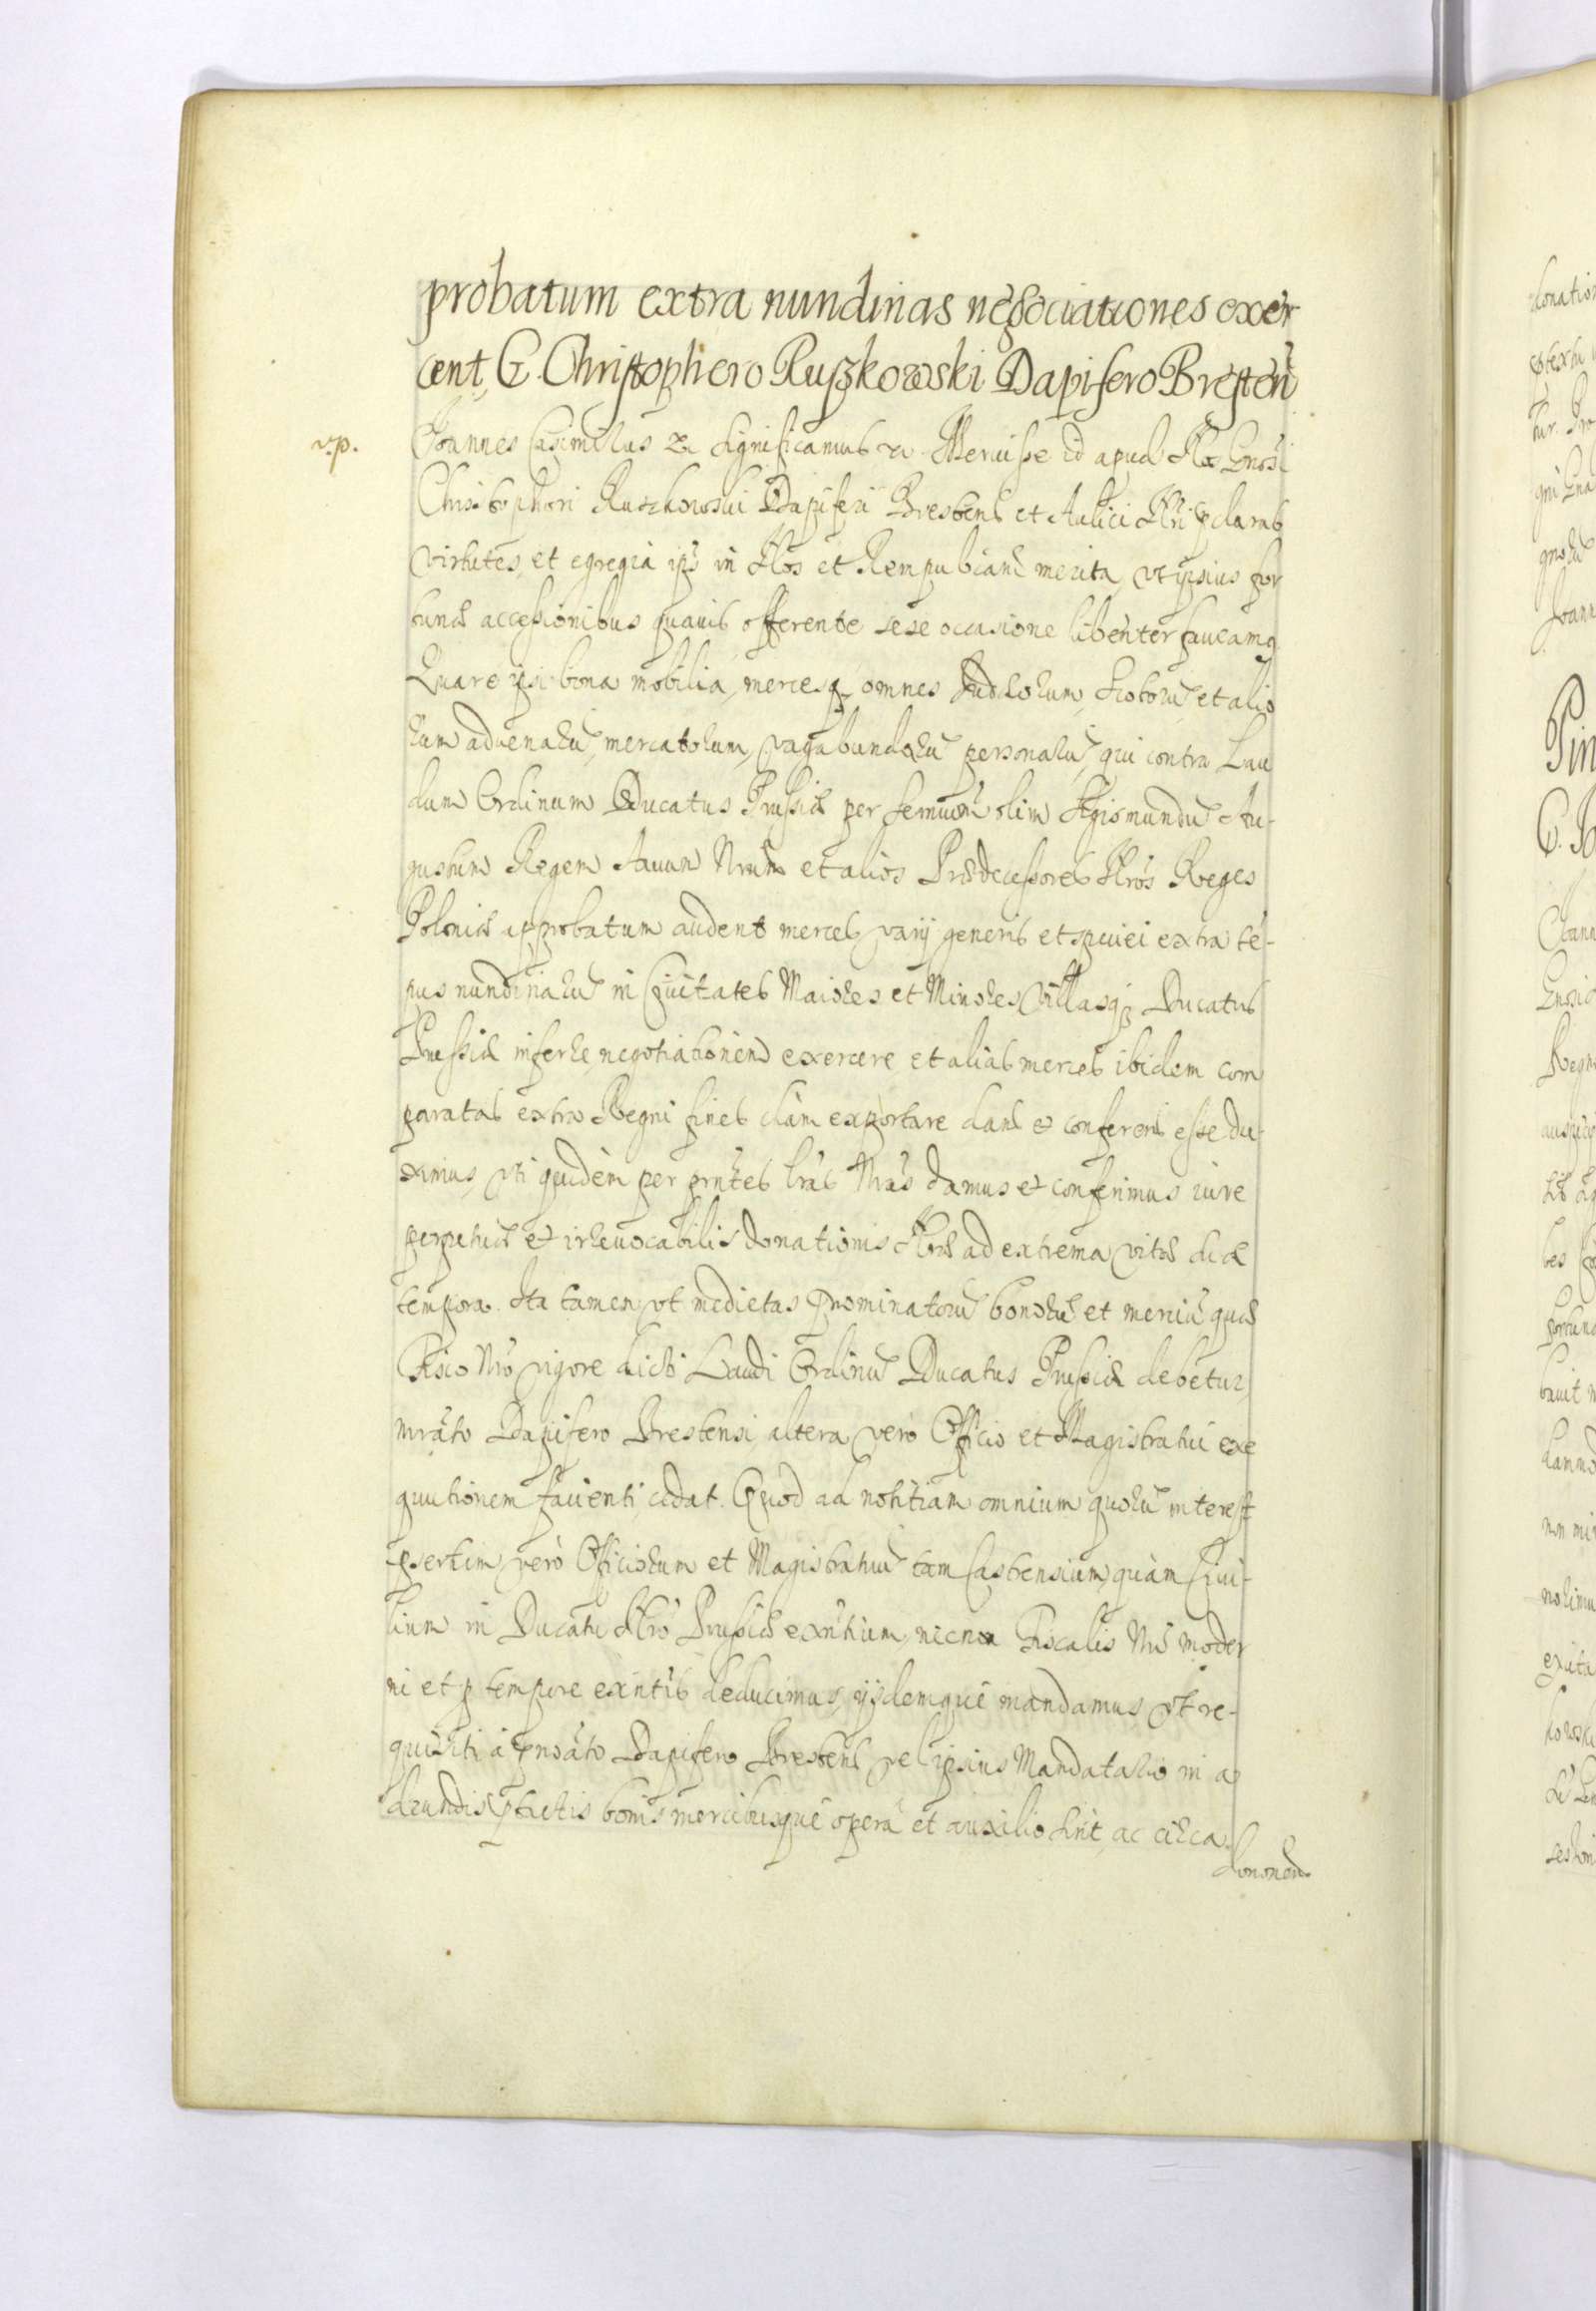 probatum extra nundinas negociationes exer
cent, G. Christophero Ruszkowski Dapifero Bresten̄
v.p.
Joannes Casimirus &c Significamus &c Meruisse id apud Nos Gnosi
Christophori Ruszkowski Dapiferi Brestens et Aulici Nri pclaras
virtutes, et egregia ips in Nos et Rempubcam merita, vt ipsius for
tunæ accessionibus quauis offerente sese occasione libenter faueamq
Quare ipsi bona mobilia, mercesq omnes Judæorum, Scotorū et alio
rum aduenarū, mercatorum, vagabundorū personarū, qui contra Lau
dum Ordinum Ducatus Prussiæ per Sermum olim Sigismundū Au-
gustum Regem Auum Nrum et alios Prædecessores Nros Reges
Poloniæ approbatum audent merces varij generis et speciei extra tē-
pus nundinarū in Ciuitates Maiores et Minores Villasq Ducatus
Prussiæ inferre, negotiationem exercere, et alias merces ibidem com
paratas extra Regni fines clam exportare dans et conferens esse du
ximus, vti quidem per pntes lras Nras damus et conferimus iure
perpetuæ et irreuocabilis donationis Nræ ad extrema vitæ diæ
tempora. Ita tamen vt medietas pnominatorū bonorū et merciū quæ
Fisco Nro vigore dicti Laudi Ordinū Ducatus Prussiæ debetur,
mrato Dapifero Brestensi altera vero Officio et Magistratui exe
quutionem facienti cedat. Quod ad notitiam omnium quorū interest
psertim vero Officiorum et Magistratuū tam Castrensium, quàm Ciui-
lium in Ducatu Nro Prussiæ exntium, necnon Fiscalis Nri moder
ni et p tempore exntis deducimus, ijsdemque mandamus, vt re-
quisiti à Gnosato Dapifero Brestens vel ipsius Mandatario in ap
dendis pfactis bonis mercibusque opera et auxilio sint, ac circa
donondm